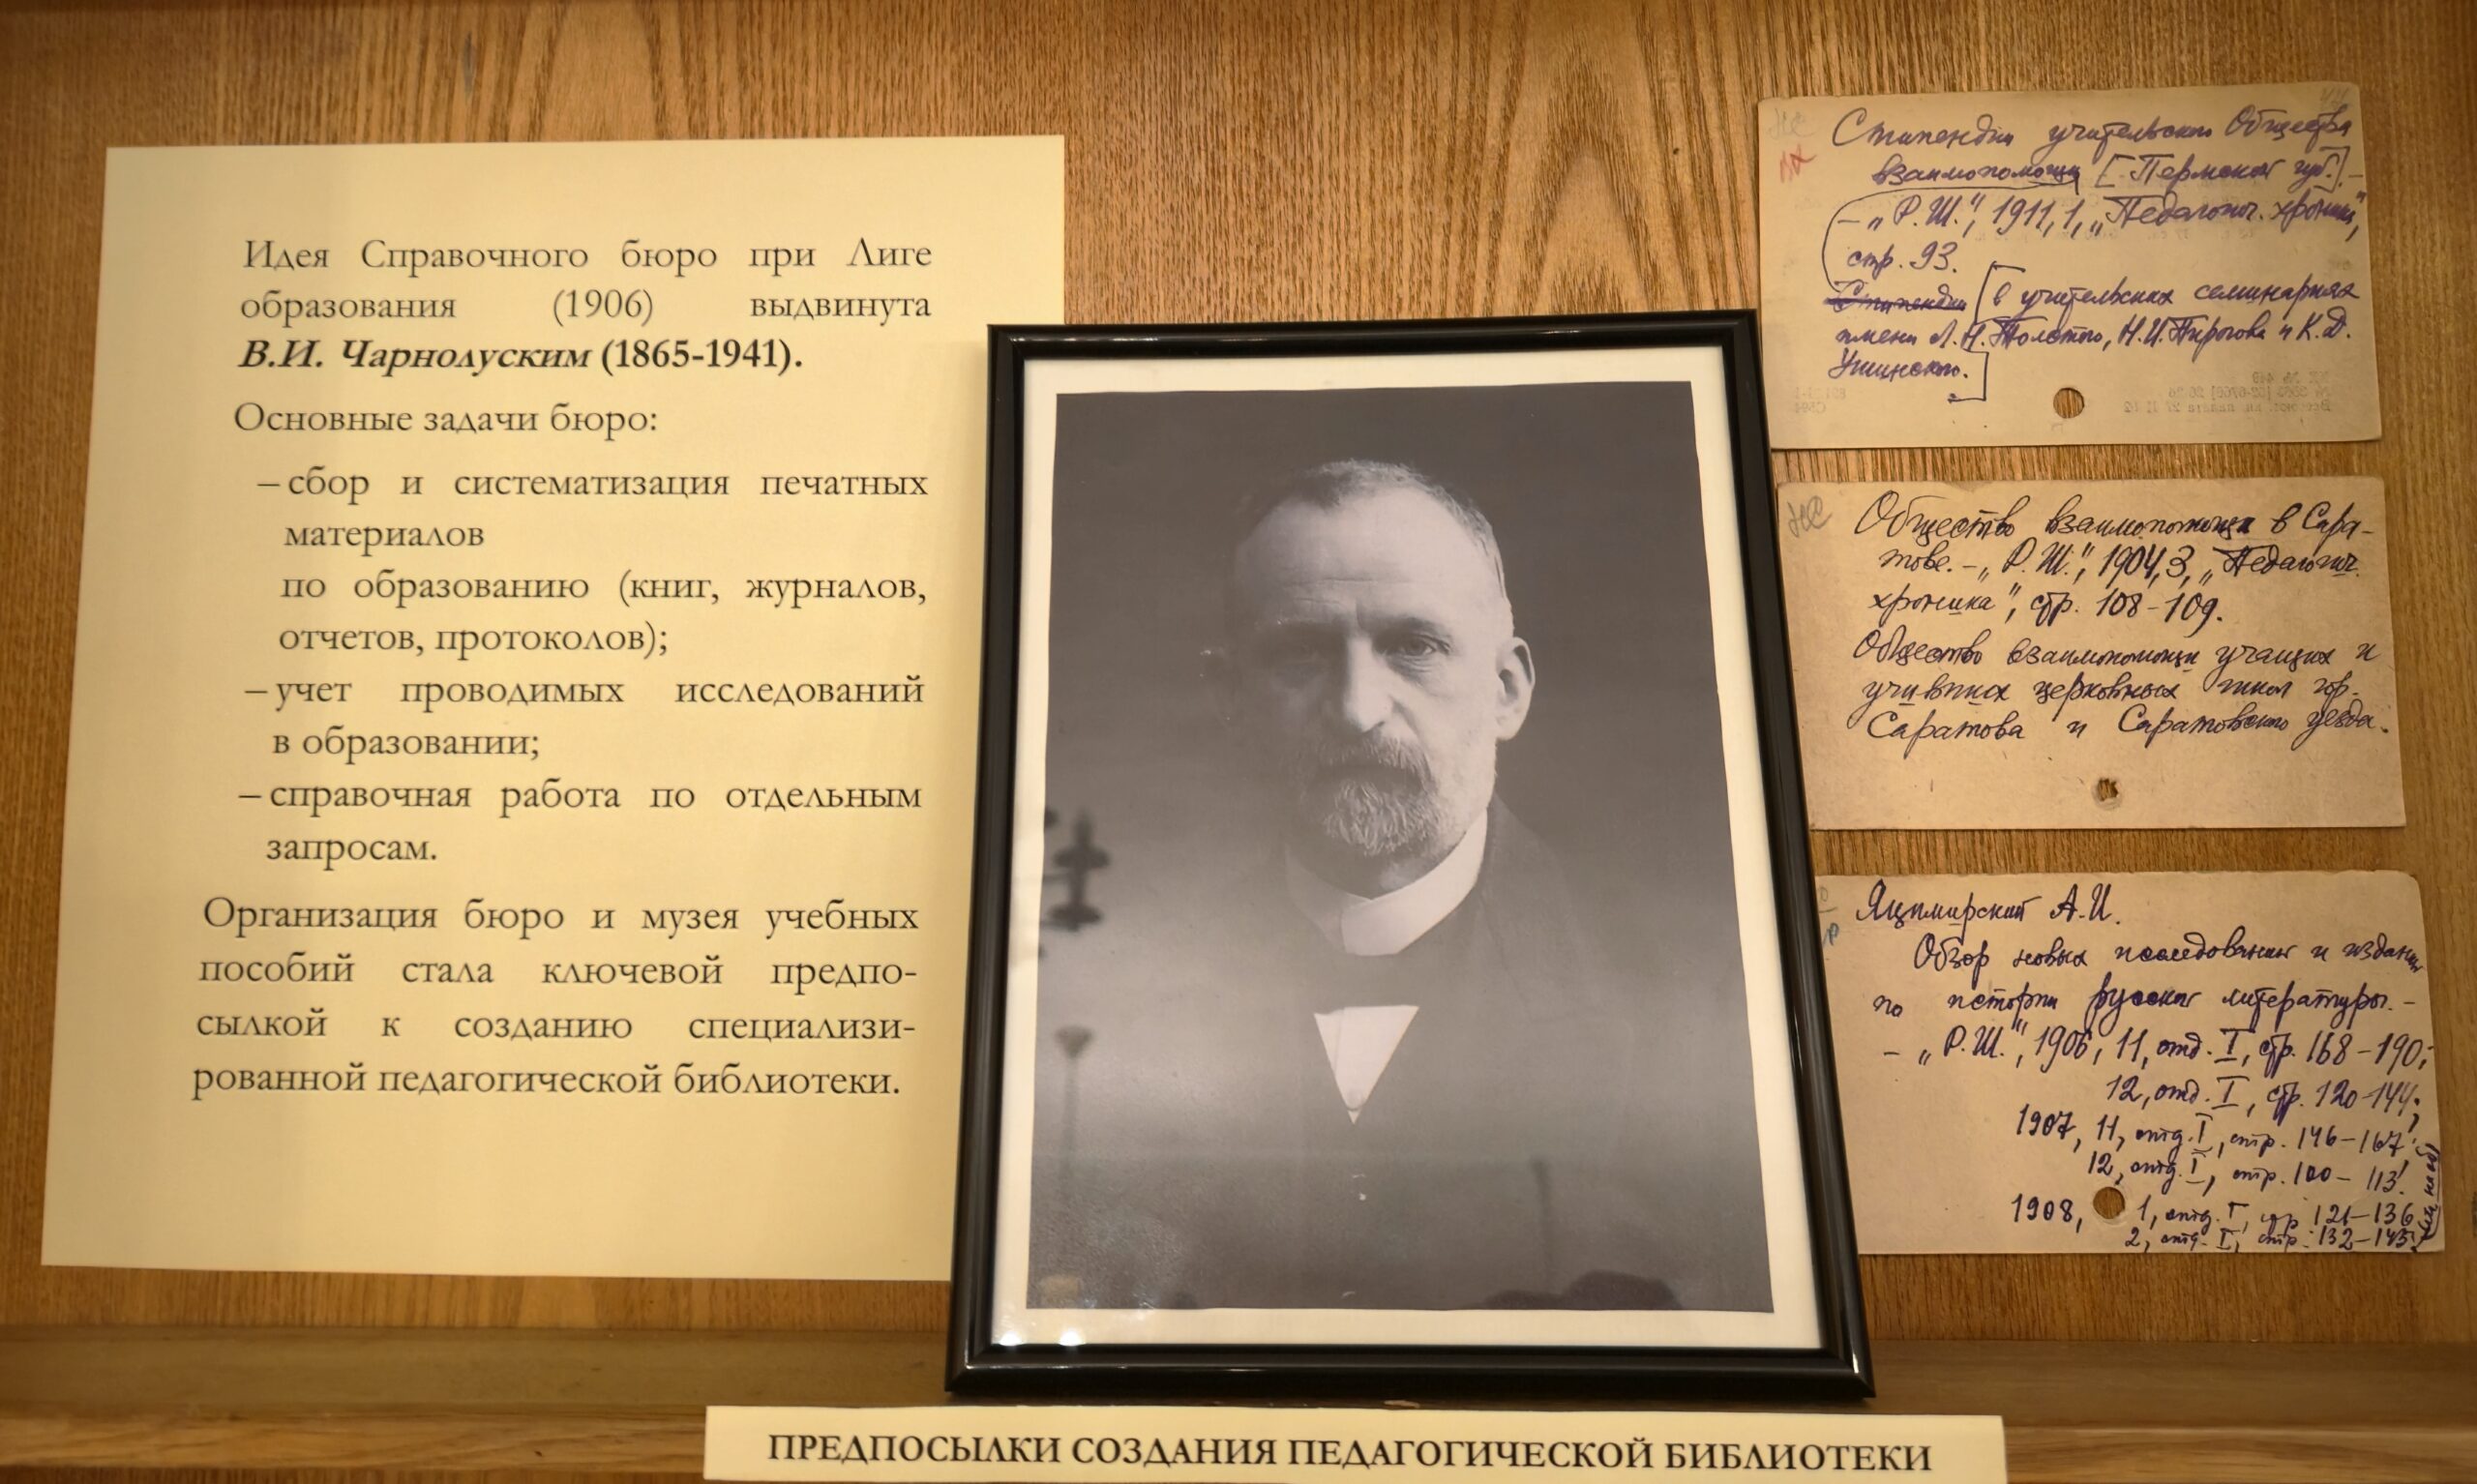 Идея Справочного бюро при Лиге
образования (1906) выдвинута
В.И. Чарнолуским (1865-1941).
Основные задачи бюро:
– сбор и систематизация печатных
материалов
по образованию (книг, журналов,
отчетов, протоколов);
– учет проводимых исследований
в образовании;
– справочная работа по отдельным
запросам.
Организация бюро и музея учебных
пособий стала ключевой предпо-
сылкой к созданию специализи-
рованной педагогической библиотеки.
Стипендии учительского Общества
взаимопомощи [Пермской губ.]. –
– „Р.Ш.", 1911, 1, „Педагогич. хроника",
стр. 93.
Стипендии [в учительских семинариях
имени Л.Н. Толстого, Н.И. Пирогова и К.Д.
Ушинского.]
Общество взаимопомощи в Сара-
тове. – „Р.Ш.", 1904, 3, „Педагогич.
хроника", стр. 108–109.
Общество взаимопомощи учащих и
учивших церковных школ гор.
Саратова и Саратовского уезда.
Яцимирский А.И.
Обзор новых исследований и изданий
по истории русской литературы. –
– „Р.Ш.", 1906, 11, отд. I, стр. 168–190;
12, отд. I, стр. 120–144;
1907, 11, отд. I, стр. 146–167;
12, отд. I, стр. 100–113;
1908, 1, отд. I, стр. 121–136
2, отд. I, стр. 132–145
ПРЕДПОСЫЛКИ СОЗДАНИЯ ПЕДАГОГИЧЕСКОЙ БИБЛИОТЕКИ